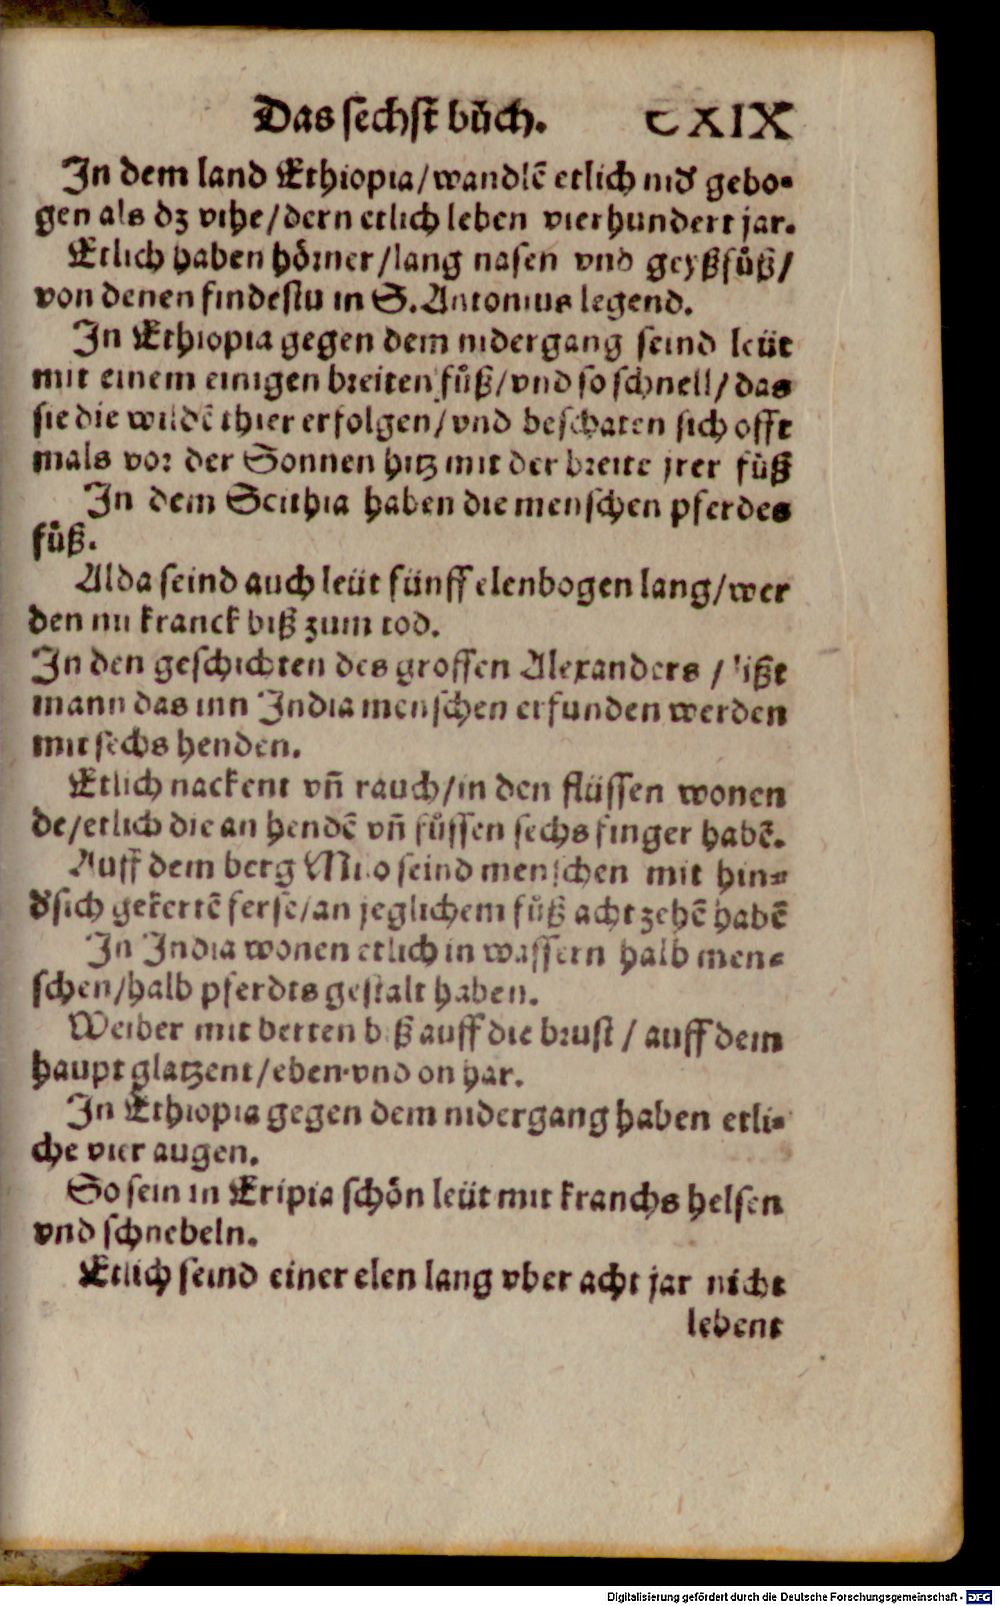 Das sechst bůch. CXIX
In dem land Ethiopia/wandlē etlich nid gebo⸗
gen als dz vihe/dern etlich leben vierhundert jar.
Etlich haben hörner/lang nasen vnd geyßfůß/
von denen findestu in S. Antonius legend.
In Ethiopia gegen dem nidergang seind leüt
mit einem einigen breiten fůß/vnd so schnell/das
sie die wildē thier erfolgen/vnd beschaten sich offt
mals vor der Sonnen hitz mit der breite jrer fůß
In dem Scithia haben die menschen pferdes
fůß.
Alda seind auch leüt fünff elenbogen lang/wer
den nit kranck biß zum tod.
In den geschichten des grossen Alexanders / lißt
mann das inn India menschen erfunden werden
mit sechs henden.
Etlich nackent vñ rauch/in den flüssen wonen
de/etlich die an hendē vñ fůssen sechs finger habē.
Auff dem berg Milo seind menschen mit hin⸗
dsich gekertē ferse/an jeglichem fůß acht zehē habē
In India wonen etlich in wassern halb men⸗
schen/halb pferdts gestalt haben.
Weiber mit berten biß auff die brust / auff dem
haupt glatzent/eben vnd on har.
In Ethiopia gegen dem nidergang haben etli⸗
che vier augen.
So sein in Eripia schön leüt mit kranchs helsen
vnd schnebeln.
Etlich seind einer elen lang vber acht jar nicht
lebent
Digitalisierung gefördert durch die Deutsche Forschungsgemeinschaft - DFG